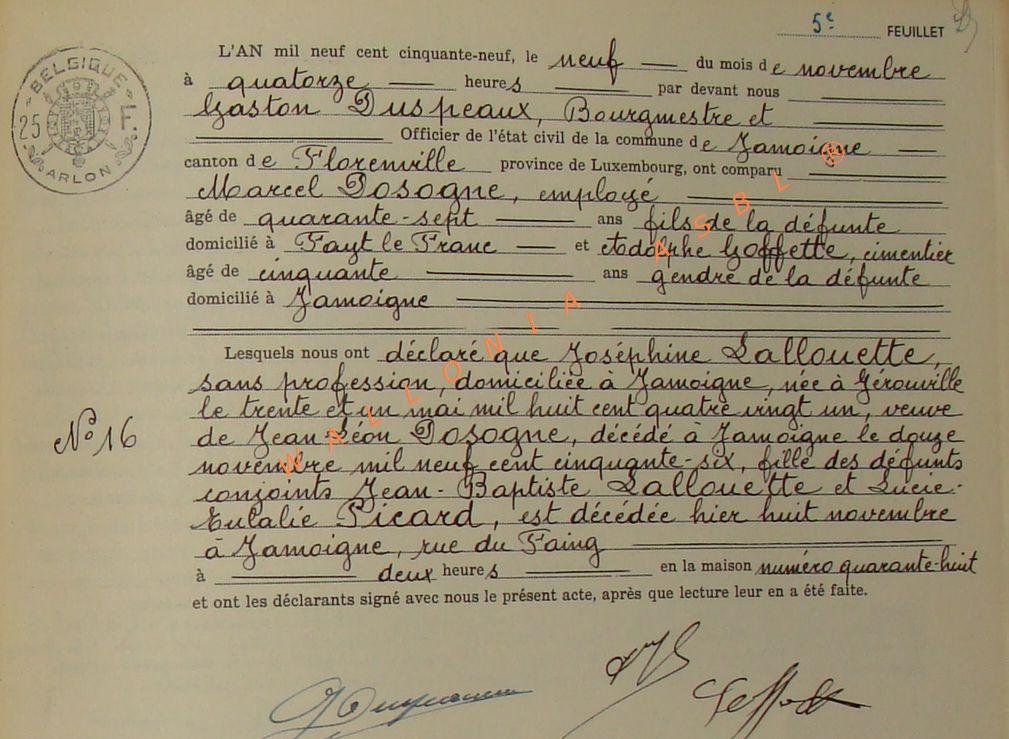 5e FEUILLET
BELGIQUE
25 F.
ARLON
L'AN mil neuf cent cinquante-neuf, le neuf du mois de novembre
à quatorze heures par devant nous
Gaston Duspeaux, Bourgmestre et
Officier de l'état civil de la commune de Jamoigne
canton de Florenville province de Luxembourg, ont comparu
Marcel Dosogne, employé
âgé de quarante-sept ans fils de la défunte
domicilié à Fayt le Franc et Adolphe Goffette, cimentier
âgé de cinquante ans gendre de la défunte
domicilié à Jamoigne
Lesquels nous ont déclaré que Joséphine Lallouette,
sans profession, domiciliée à Jamoigne, née à Gérouville
le trente et un mai mil huit cent quatre vingt un, veuve
de Jean-Léon Dosogne, décédé à Jamoigne le douze
N° 16
novembre mil neuf cent cinquante-six, fille des défunts
conjoints Jean-Baptiste Lallouette et Lucie-
Eulalie Picard, est décédée hier huit novembre
à Jamoigne, rue du Faing
à deux heures en la maison numéro quarante-huit
et ont les déclarants signé avec nous le présent acte, après que lecture leur en a été faite.
WALLONIA ASBL ®